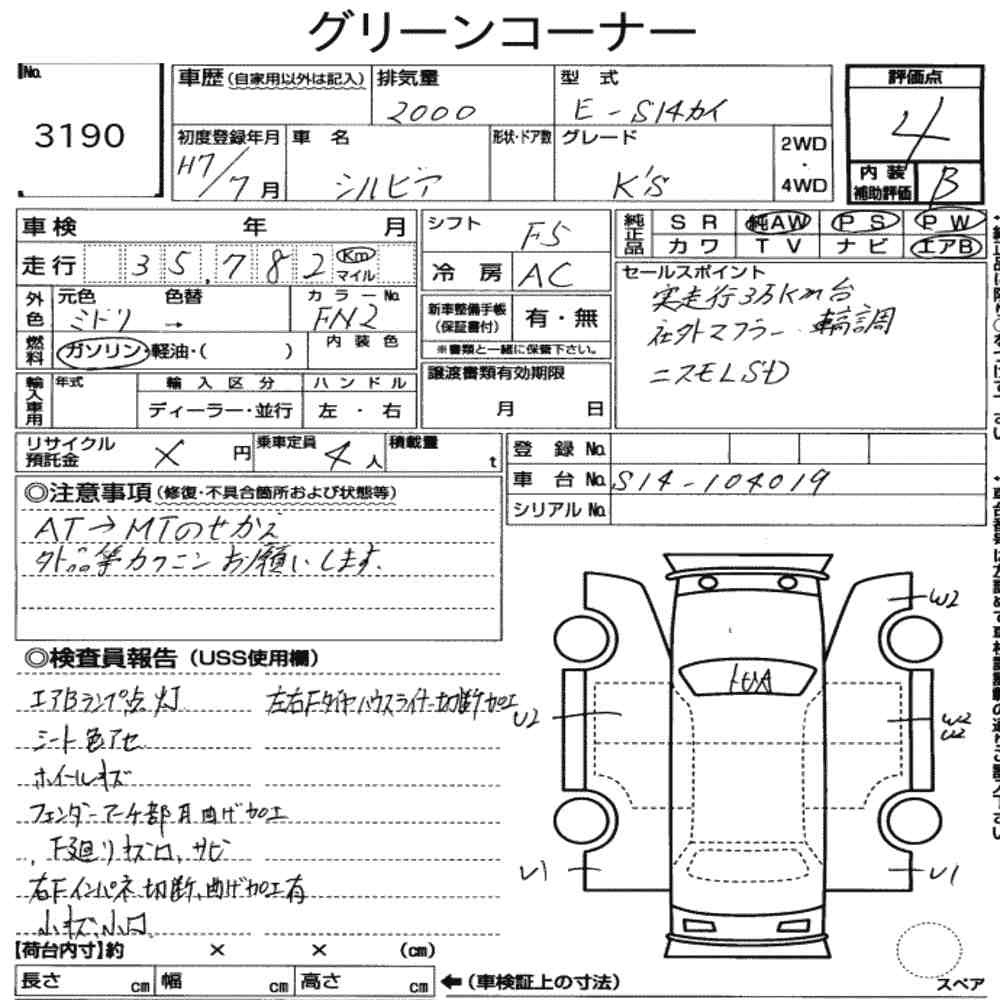 グリーンコーナー
No.
3190
車歴(自家用以外は記入)
排気量
2000
型 式
E-S14カイ
評価点
4
内装補助評価
B
初度登録年月
H7/7月
車 名
シルビア
形状・ドア数
グレード
K'S
2WD
・
4WD
車検 年 月
走行 35,782 Km マイル
外色 元色 色替 カラーNo.
ミドリ → FN2
燃料 ガソリン・軽油・( ) 内装色
輸入車用 年式 輸入区分 ハンドル
ディーラー・並行 左・右
シフト F5
冷房 AC
新車整備手帳(保証書付) 有・無
※書類と一緒に保管下さい。
譲渡書類有効期限
月 日
純正品 SR 純AW PS PW
カワ TV ナビ エアB
セールスポイント
実走行3万Km台
社外マフラー 車高調
ニスモLSD
リサイクル預託金 × 円 乗車定員 4人 積載量 t
登録No.
車台No. S14-104019
シリアルNo.
◎注意事項(修復・不具合箇所および状態等)
AT→MTのせかえ
外品等カクニンお願いします.
◎検査員報告(USS使用欄)
エアBランプ点灯
左右Fタイヤハウスライナー切断加工
シート色アセ
ホイールキズ
フェンダーアーチ部爪曲げ加工
下廻りキズ凹、サビ
右Fインパネ切断、曲げ加工有
小キズ、小凹
W2
U2
W2
U2
U1
U1
【荷台内寸】約 × × (cm)
長さ cm 幅 cm 高さ cm ←(車検証上の寸法)
スペア